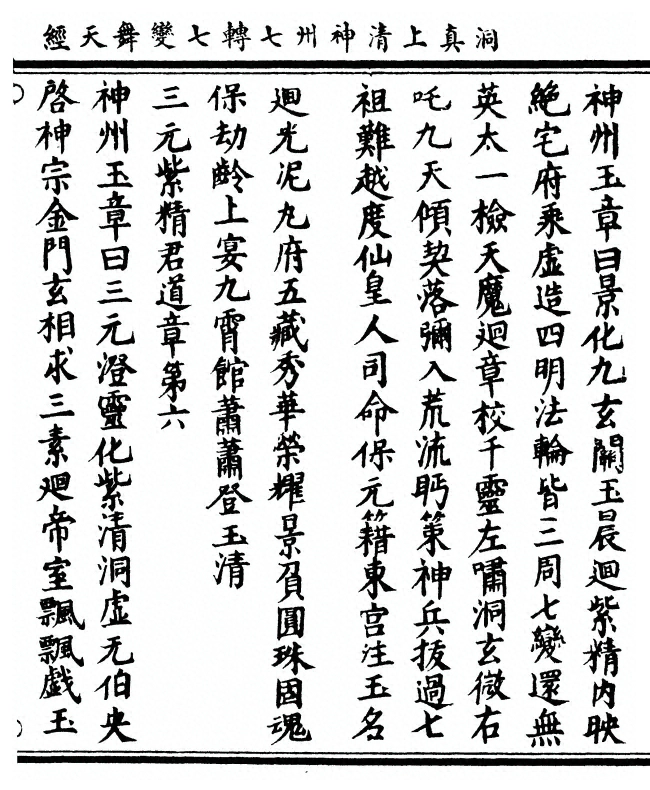 洞真上清神州七轉七變舞天經
神州玉章曰景化九玄關玉晨迴紫精内映
絶宅府乘虚造四明法輪皆三周七變還無
英太一檢天魔迴章校千靈左嘯洞玄微右
吒九天傾契落彌入荒流眄策神兵拔過七
祖難越度仙皇人司命保元籍東宫注玉名
迴光泥丸府五藏秀華榮耀景負圓珠固魂
保劫齡上宴九霄館蕭蕭登玉清
三元紫精君道章第六
神州玉章曰三元澄靈化紫清洞虚无伯史
啓神宗金門玄相求三素迴帝室飄飄戲玉